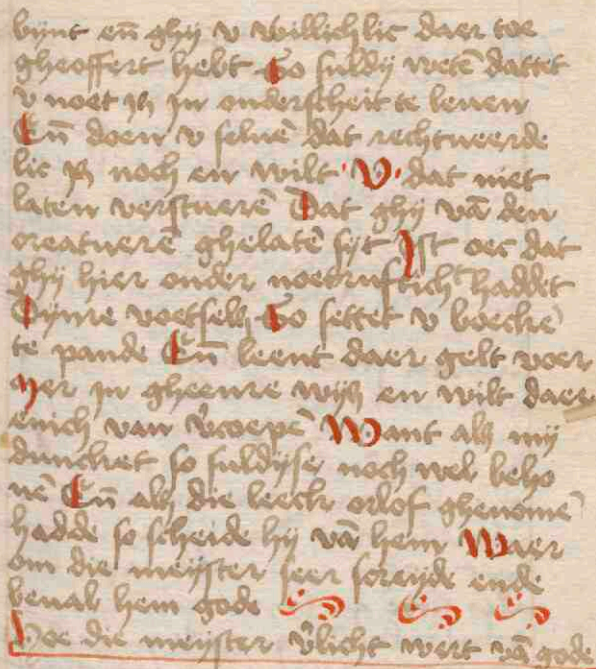 bynt en̄ ghij v willichlic daer toe
gheoffert hebt So suldij wetē dattet
v noet is in onderscheit te leuen
En̄ doen v seluē dat rechtueerde
lic is noch en wilt · V · dat niet
laten verstuerē Dat ghij vā den
creatuerē ghelatē sijt Ist oec dat
ghij hier onder noetruftich haddet
Dijnre voetsels So settet v boeckē
te pande En̄ leent daer gelt voer
Mer in gheenre wijs en wilt daer
enich van v̉coepē Want als mij
duncket so suldijse noch wel beho
uē En̄ als die leeck orlof ghenomē
hadde so scheide hij vā hem Waer
om die meijster seer screijde ende
beual hem gode
Hoe die meijster v̉licht wert vā gode